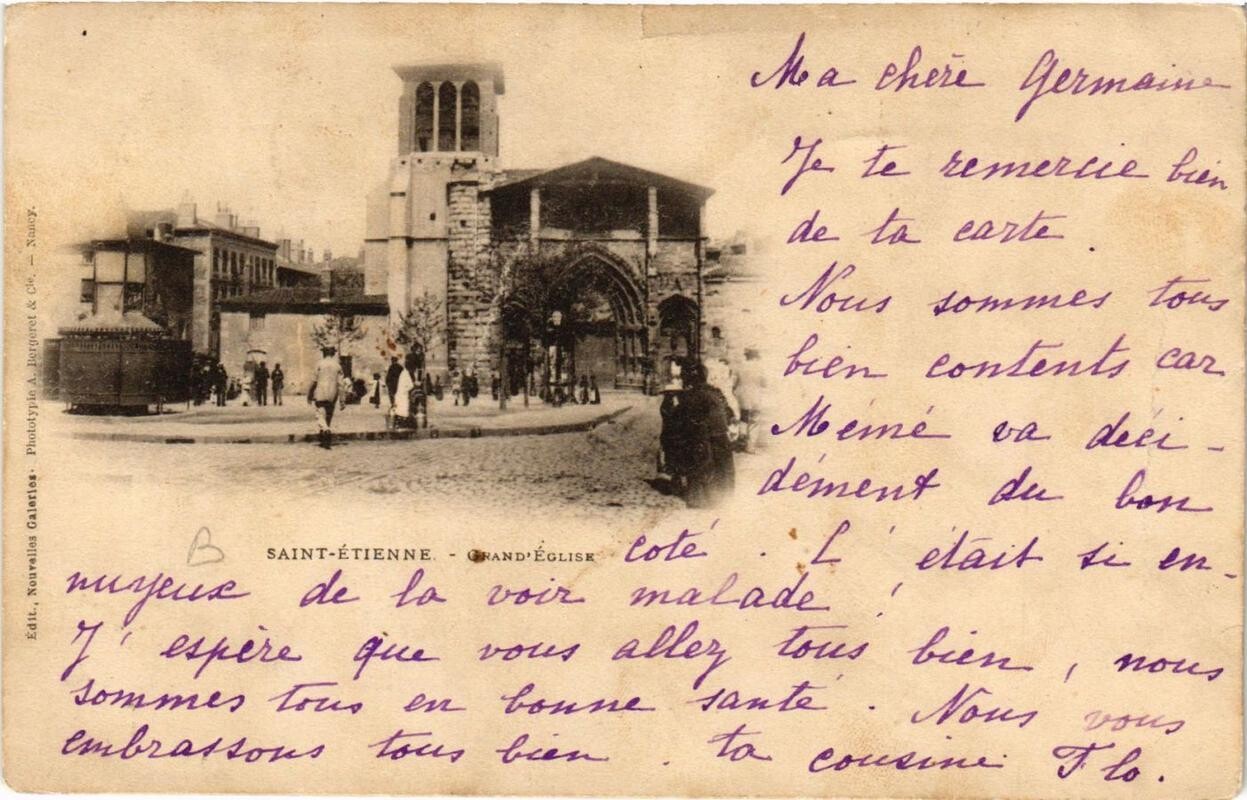 Ma chère Germaine
Je te remercie bien
de ta carte.
Nous sommes tous
bien contents car
Mémé va déci-
dément du bon
coté. C'était si en-
nuyeux de la voir malade!
J'espère que vous allez tous bien, nous
sommes tous en bonne santé. Nous vous
embrassons tous bien. ta cousine Flo.
B
SAINT-ÉTIENNE. - GRAND'ÉGLISE
Édit., Nouvelles Galeries. Phototypie A. Bergeret & Cie. — Nancy.